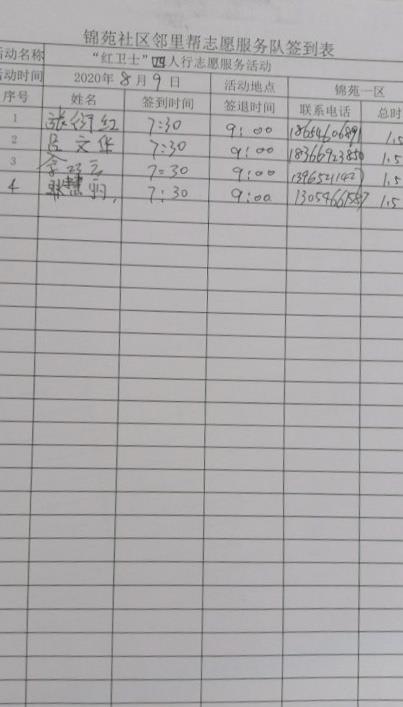 锦苑社区邻里帮志愿服务队签到表
活动名称 “红卫士”四人行志愿服务活动
活动时间 2020年8月9日 活动地点 锦苑一区
序号 姓名 签到时间 签退时间 联系电话 总时
1 张 红 7:30 9:00 18654606891 1.5
2 吕文华 7:30 9:00 18366923850 1.5
3 7:30 9:00 1.5
4 7:30 9:00 13054661587 1.5